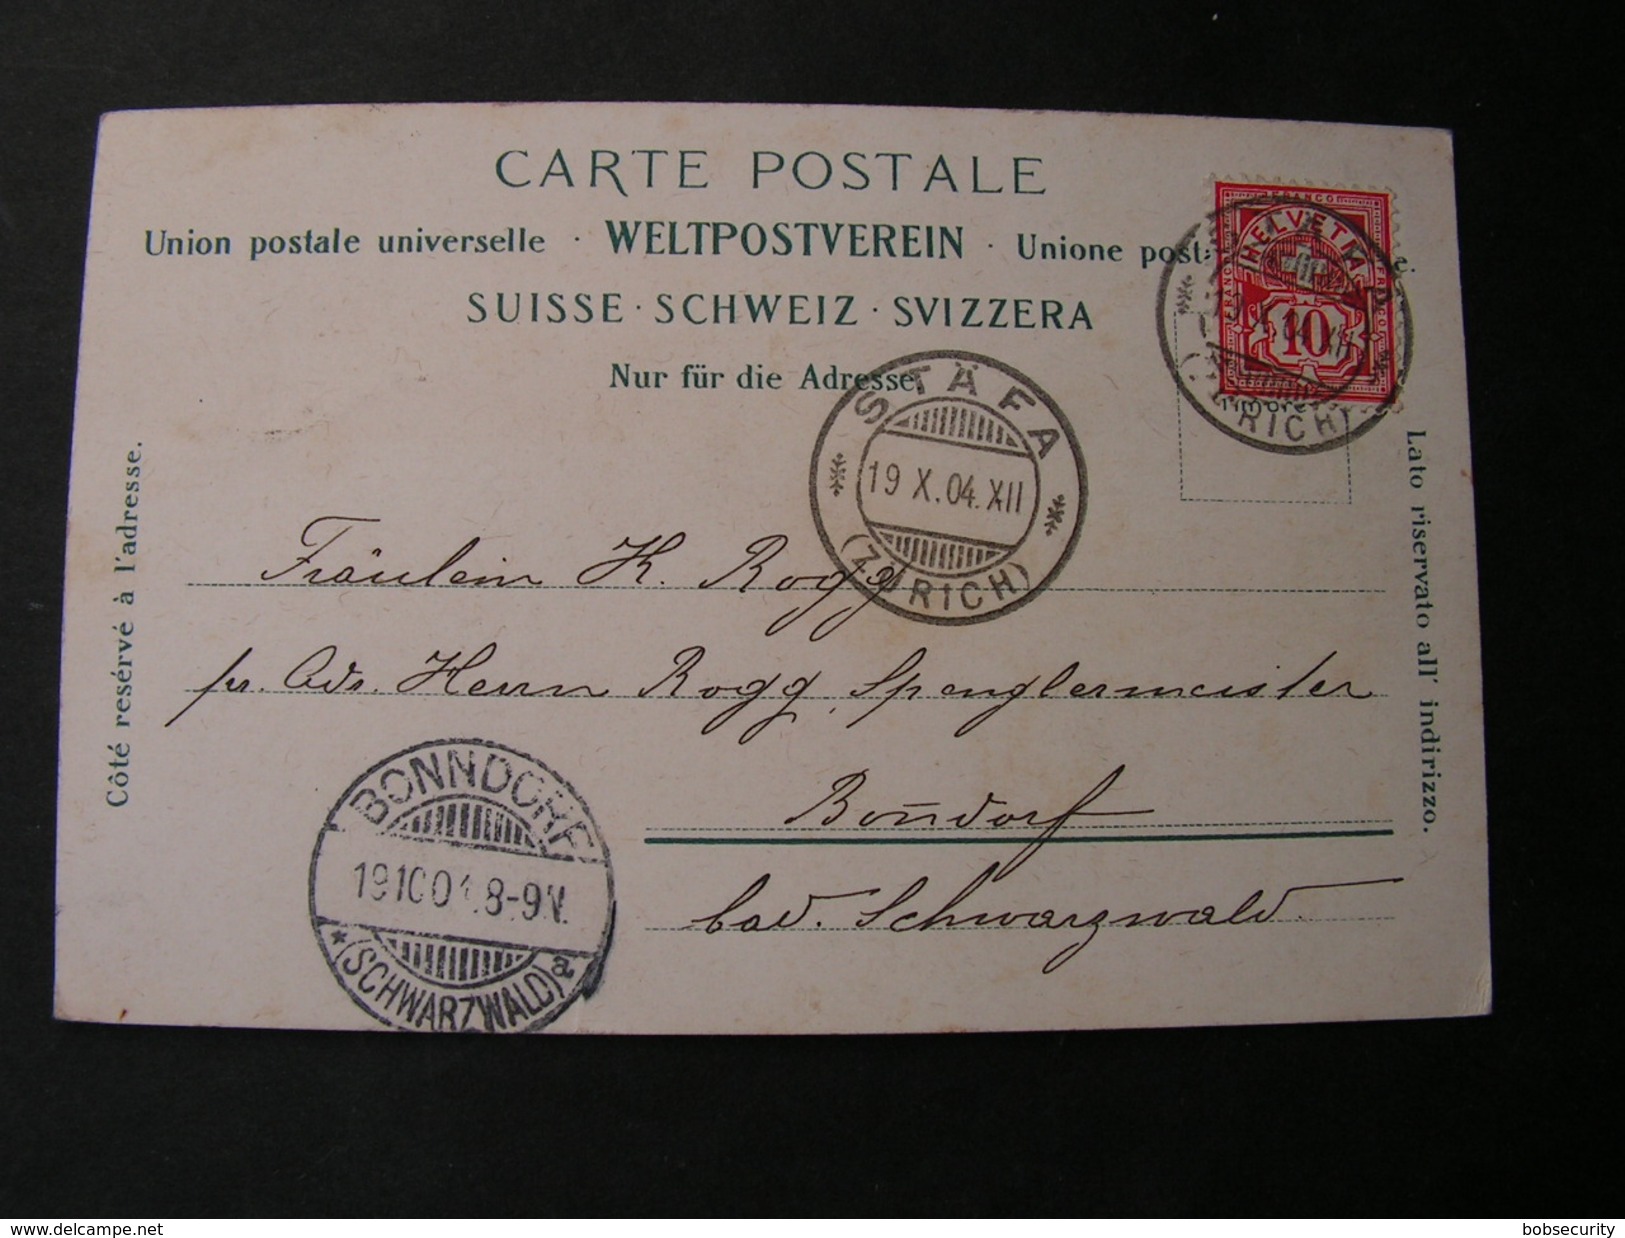 CARTE POSTALE
Union postale universelle · WELTPOSTVEREIN · Unione post
SUISSE · SCHWEIZ · SVIZZERA
Nur für die Adresse
FRANCO
HELVETIA
FRANCO
10
19 X. 04. XII
(ZÜRICH)
STÄFA
19 X. 04. XII
(ZÜRICH)
Côté resérvé à l'adresse.
Lato riservato all' indirizzo.
Fräulein K. Rogg
pr. Adr. Herrn Rogg, Spenglermeister
Bon̄dorf
bad. Schwarzwald.
BONNDORF
19 10 04 8-9V.
* (SCHWARZWALD) a
delcampe.net
bobsecurity